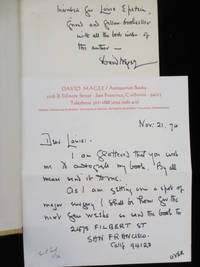 Inscribed for Louis Epstein,
friend and fellow bookseller
with all the best wishes of
the author —
David Magee
DAVID MAGEE / Antiquarian Books
San Francisco, California
Telephone
Nov. 21. 70
Dear Louis:
I am flattered that you wish
me to autograph my book. By all
means send it to me.
As I am getting over a spot of
major surgery I shall be home for the
next few weeks so send the book to
2475 FILBERT ST
SAN FRANCISCO.
Calif 94123
OVER